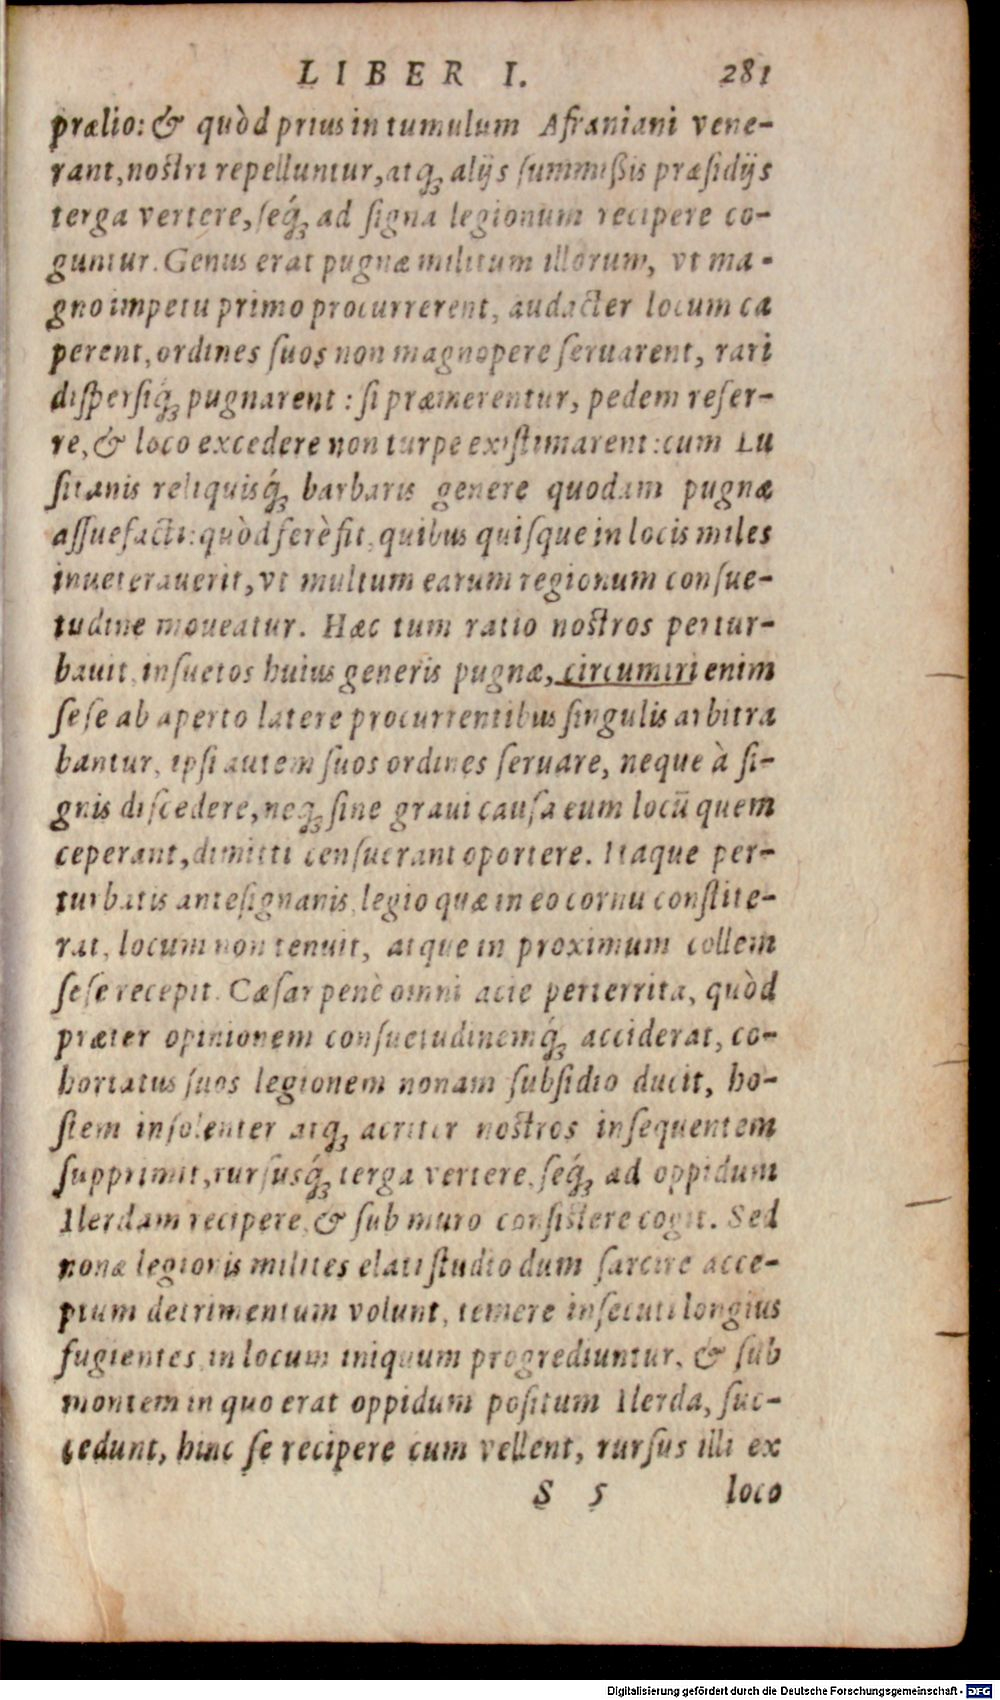 LIBER I. 281
prælio: & quòd prius in tumulum Afraniani vene-
rant, nostri repelluntur, atq́; alijs summißis præsidijs
terga vertere, seq́; ad signa legionum recipere co-
guntur. Genus erat pugnæ militum illorum, vt ma-
gno impetu primo procurrerent, audacter locum ca
perent, ordines suos non magnopere seruarent, rari
dispersiq́; pugnarent : si præmerentur, pedem refer-
re, & loco excedere non turpe existimarent: cum Lu
sitanis reliquisq́; barbaris genere quodam pugnæ
assuefacti: quòd ferè fit, quibus quisque in locis miles
inueterauerit, vt multum earum regionum consue-
tudine moueatur. Hæc tum ratio nostros pertur-
bauit, insuetos huius generis pugnæ, circumiri enim
sese ab aperto latere procurrentibus singulis arbitra
bantur, ipsi autem suos ordines seruare, neque à si-
gnis discedere, neq; sine graui causa eum locũ quem
ceperant, dimitti censuerant oportere. Itaque per-
turbatis antesignanis, legio quæ in eo cornu constite-
rat, locum non tenuit, atque in proximum collem
sese recepit. Cæsar penè omni acie perterrita, quòd
præter opinionem consuetudinemq́; acciderat, co-
hortatus suos legionem nonam subsidio ducit, ho-
stem insolenter atq; acriter nostros insequentem
supprimit, rursusq́; terga vertere, seq́; ad oppidum
Ilerdam recipere, & sub muro consistere cogit. Sed
nonæ legionis milites elati studio dum sarcire acce-
ptum detrimentum volunt, temere insecuti longius
fugientes, in locum iniquum progrediuntur, & sub
montem in quo erat oppidum positum Ilerda, suc-
cedunt, hinc se recipere cum vellent, rursus illi ex
S 5 loco
Digitalisierung gefördert durch die Deutsche Forschungsgemeinschaft - DFG